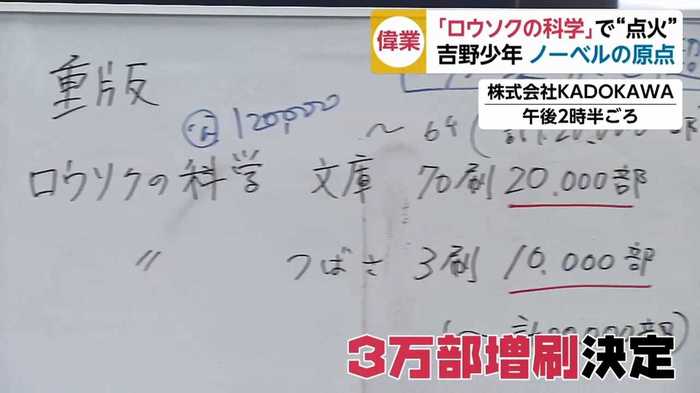 偉業
「ロウソクの科学」で“点火”
吉野少年 ノーベルの原点
株式会社KADOKAWA
午後2時半ごろ
重版
120,000
～64
ロウソクの科学 文庫 70刷 20.000部
〃 つばさ 3刷 10.000部
3万部増刷決定